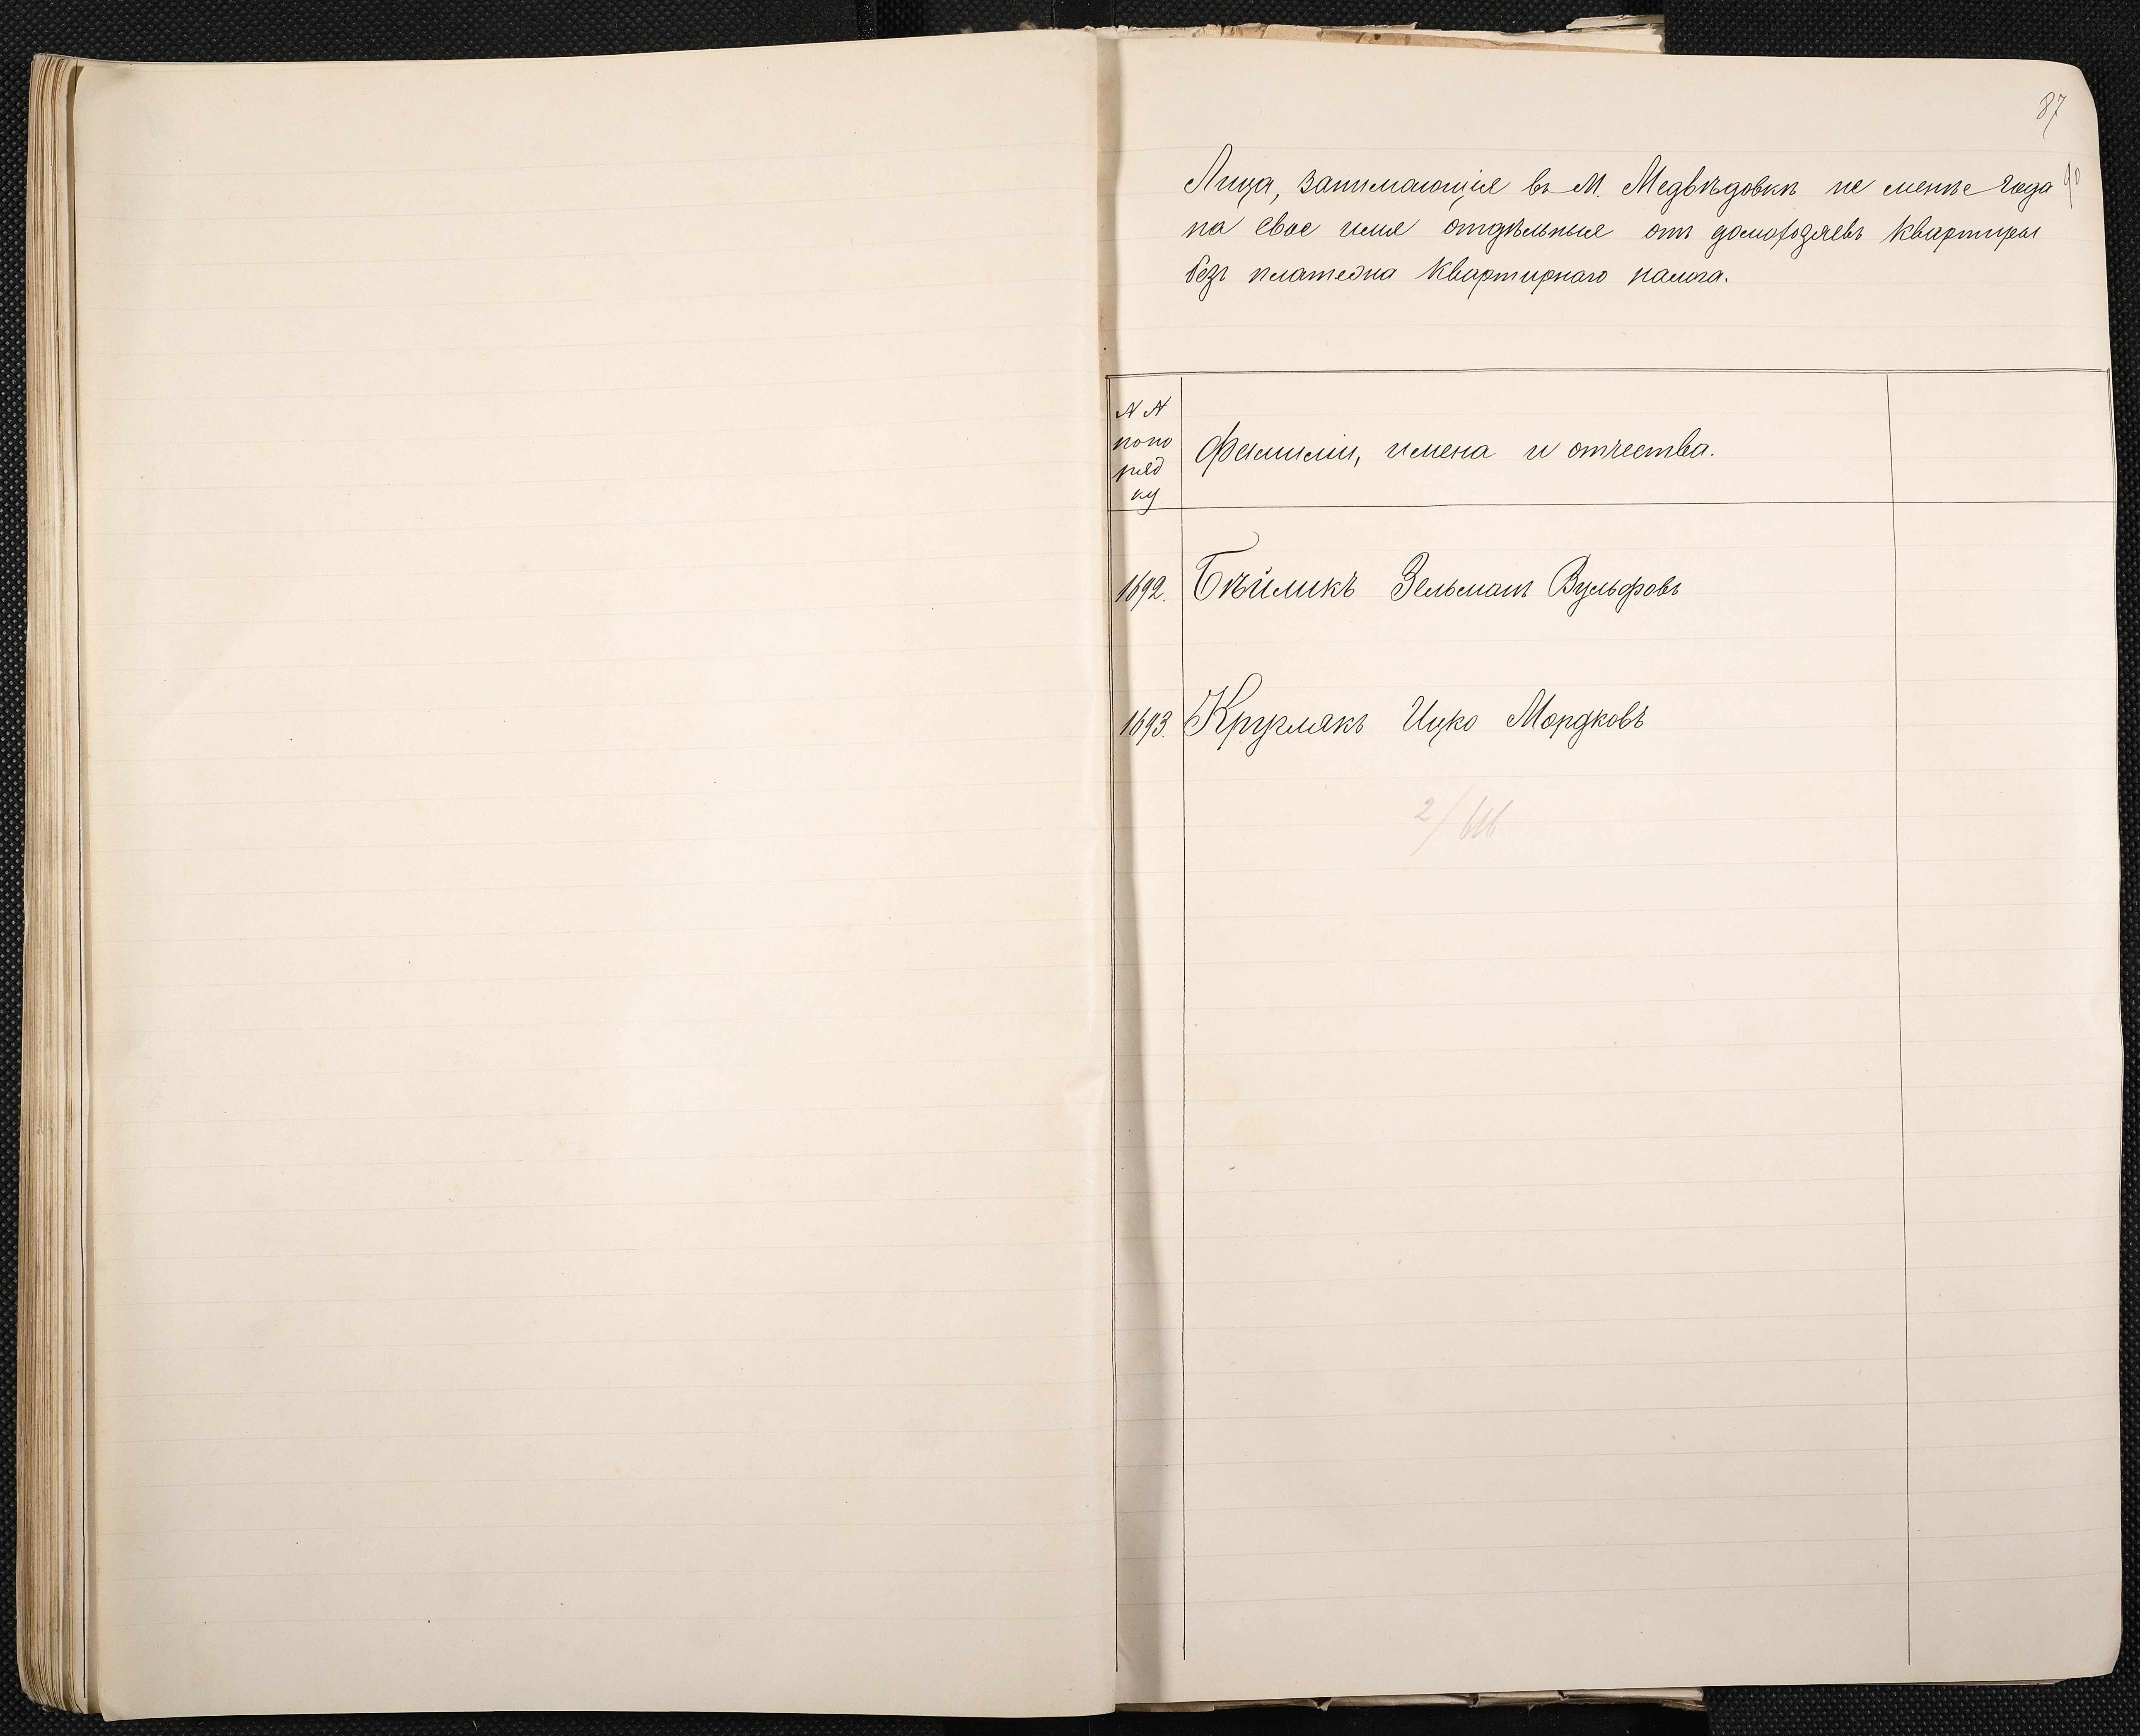 87
90
Лица, занимающія въ М. Медвѣдовкѣ не менѣе года
на свое имя отдѣльныя отъ домохозяевъ квартиры
безъ платежа квартирнаго налога.
N N
по по
ряд
ку
Фамиліи, имена и отчества.
1692. Бѣйликъ Зельманъ Вульфовъ
1693. Круглякъ Ицко Мордковъ
2/